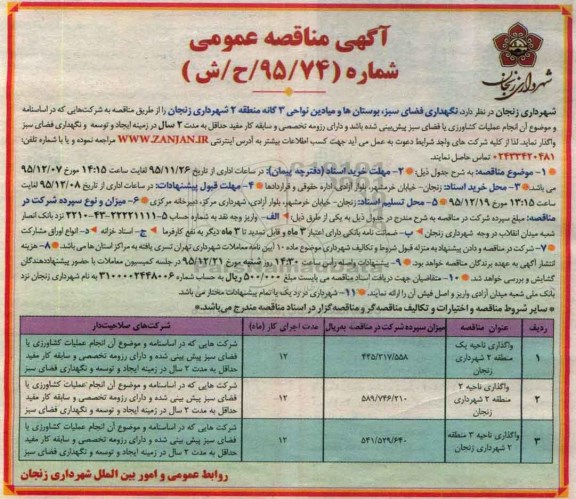 آگهی مناقصه عمومی
شماره (۹۵/۷۴/ح/ش)
شهرداری زنجان
شهرداری زنجان در نظر دارد، نگهداری فضای سبز، بوستان ها و میادین نواحی ۳ گانه منطقه ۲ شهرداری زنجان را از طریق مناقصه به شرکت‌هایی که در اساسنامه
و موضوع آن انجام عملیات کشاورزی یا فضای سبز پیش‌بینی شده باشد و دارای رزومه تخصصی و سابقه کار مفید حداقل به مدت ۲ سال در زمینه ایجاد و توسعه و نگهداری فضای سبز
واگذار نماید. لذا از کلیه شرکت های واجد شرایط دعوت به عمل می آید جهت کسب اطلاعات بیشتر به آدرس اینترنتی WWW.ZANJAN.IR مراجعه نموده و یا با شماره تلفن:
۰۲۴۳۳۴۲۰۴۸۱ تماس حاصل نمایند.
۱- موضوع مناقصه: به شرح جدول ذیل؛ ۲- مهلت خرید اسناد (دفترچه پیمان): در ساعات اداری از تاریخ ۹۵/۱۱/۲۶ لغایت ساعت ۱۴:۱۵ مورخ ۹۵/۱۲/۰۷
می باشد. ۳- محل خرید اسناد: زنجان - خیابان خرمشهر، بلوار آزادی، اداره حقوقی و قراردادها ۴- مهلت قبول پیشنهادات: در ساعات اداری از تاریخ ۹۵/۱۲/۰۸ لغایت
ساعت ۱۳:۱۵ مورخ ۹۵/۱۲/۱۹ ۵- محل تسلیم اسناد: زنجان - خیابان خرمشهر، بلوار آزادی، شهرداری مرکز، دبیرخانه مرکزی ۶- میزان و نوع سپرده شرکت در
مناقصه: مبلغ سپرده شرکت در مناقصه به شرح مندرج در جدول ذیل به یکی از طرق ذیل: الف- واریز وجه نقد به شماره حساب ۵-۲۲۲۲۱۱۱۱-۴۳-۲۲۱۰ نزد بانک انصار
شعبه میدان انقلاب در وجه شهرداری زنجان ب- ضمانت نامه بانکی دارای اعتبار ۳ ماه و قابل تمدید تا ۳ ماه دیگر به نفع کارفرما ج- اسناد خزانه د- انواع اوراق مشارکت
۷- شرکت در مناقصه و دادن پیشنهاد به منزله قبول شروط و تکالیف شهرداری موضوع ماده ۱۰ آیین نامه معاملات شهرداری تهران تسری یافته به مراکز استان ها می باشد. ۸- هزینه
انتشار آگهی به عهده برندگان مناقصه خواهد بود. ۹- پیشنهادات واصله رأس ساعت ۱۴:۳۰ روز شنبه مورخ ۹۵/۱۲/۲۱ در جلسه کمیسیون معاملات با حضور پیشنهاددهندگان
گشایش و بررسی خواهد شد. ۱۰- متقاضیان جهت دریافت اسناد مناقصه می بایست مبلغ ۵۰۰/۰۰۰ ریال به شماره حساب ۳۱۰۰۰۰۲۴۴۸۰۰۶ به نام شهرداری زنجان نزد
بانک ملی شعبه میدان آزادی واریز و اصل فیش آن را ارائه نمایند. ۱۱- شهرداری در رد یک یا تمام پیشنهادات مختار می باشد.
* سایر شروط مناقصه و اختیارات و تکالیف مناقصه گر و مناقصه گزار در اسناد مناقصه مندرج می‌باشد.*
ردیف عنوان مناقصه میزان سپرده شرکت در مناقصه به ریال مدت اجرای کار (ماه) شرکت های صلاحیت‌دار
۱ واگذاری ناحیه یک منطقه ۲ شهرداری زنجان ۴۳۵/۲۱۷/۵۵۸ ۱۲ شرکت هایی که در اساسنامه و موضوع آن انجام عملیات کشاورزی یا فضای سبز پیش بینی شده و دارای رزومه تخصصی و سابقه کار مفید حداقل به مدت ۲ سال در زمینه ایجاد و توسعه و نگهداری فضای سبز
۲ واگذاری ناحیه ۲ منطقه ۲ شهرداری زنجان ۵۸۹/۷۴۶/۲۱۰ ۱۲ شرکت هایی که در اساسنامه و موضوع آن انجام عملیات کشاورزی یا فضای سبز پیش بینی شده و دارای رزومه تخصصی و سابقه کار مفید حداقل به مدت ۲ سال در زمینه ایجاد و توسعه و نگهداری فضای سبز
۳ واگذاری ناحیه ۳ منطقه ۲ شهرداری زنجان ۵۴۱/۵۲۹/۶۴۰ ۱۲ شرکت هایی که در اساسنامه و موضوع آن انجام عملیات کشاورزی یا فضای سبز پیش بینی شده و دارای رزومه تخصصی و سابقه کار مفید حداقل به مدت ۲ سال در زمینه ایجاد و توسعه و نگهداری فضای سبز
روابط عمومی و امور بین الملل شهرداری زنجان